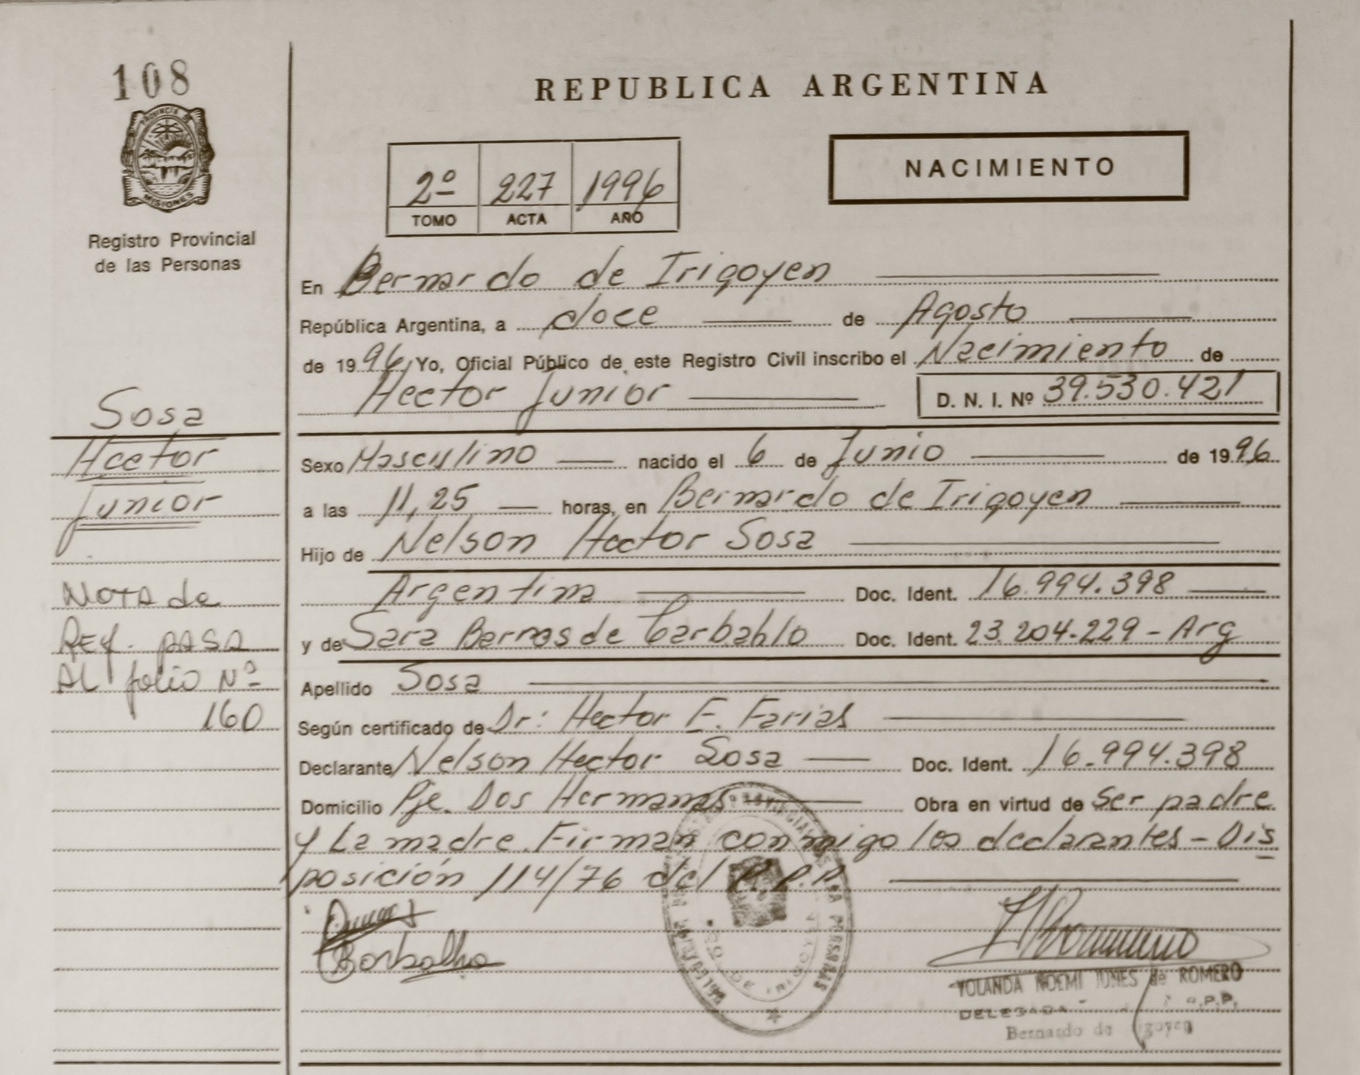 108
REPUBLICA ARGENTINA
PROVINCIA DE
MISIONES
Registro Provincial
de las Personas
2º 227 1996
TOMO ACTA AÑO
NACIMIENTO
En Bernardo de Irigoyen
República Argentina, a doce de Agosto
de 1996, Yo, Oficial Público de este Registro Civil inscribo el Nacimiento de
Hector Junior D. N. I. Nº 39.530.421
Sosa
Hector
Junior
Sexo Masculino nacido el 6 de Junio de 1996
a las 11,25 horas, en Bernardo de Irigoyen
Hijo de Nelson Hector Sosa
Argentina Doc. Ident. 16.994.398
y de Sara Barros de Carbahlo Doc. Ident. 23.204.229 - Arg
Nota de
Ref. pasa
al folio Nº
160
Apellido Sosa
Según certificado de Dr: Hector E. Farias
Declarante Nelson Hector Sosa Doc. Ident. 16.994.398
Domicilio Pje. Dos Hermanas Obra en virtud de Ser padre
y La madre. Firman conmigo los declarantes - Dis
posición 114/76 del R.P.P.
Borbalho
YOLANDA NOEMI JUNES de ROMERO
DELEGADA R.P.P.
Bernardo de Irigoyen